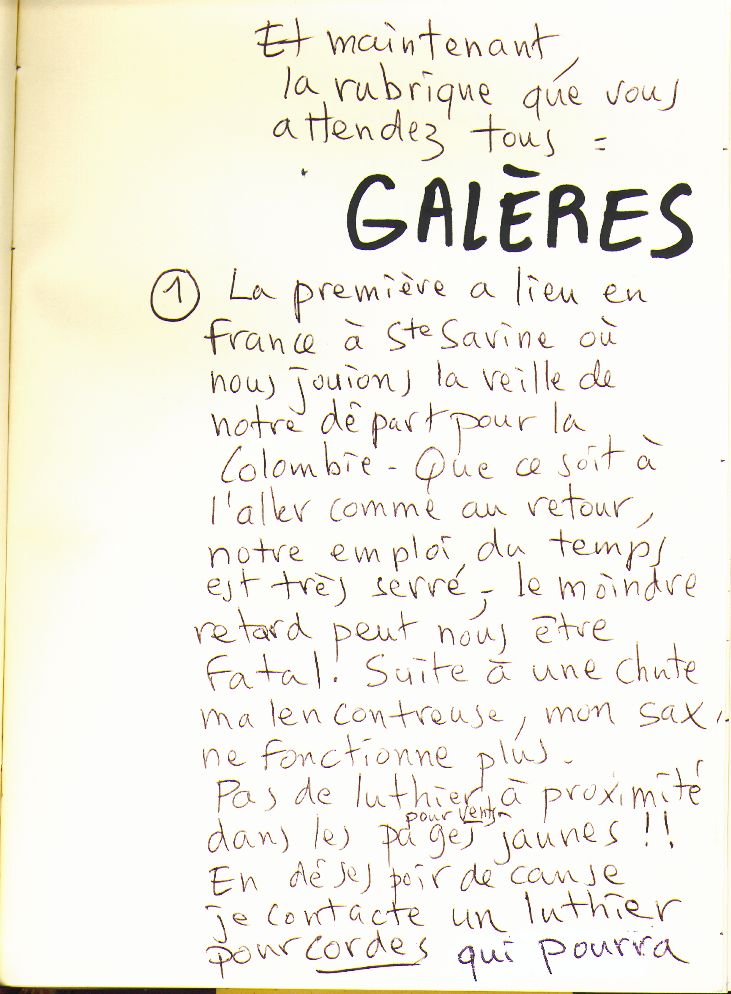 Et maintenant,
la rubrique que vous
attendez tous =
GALÈRES
① La première a lieu en
France à Ste Savine où
nous jouions la veille de
notre départ pour la
Colombie - Que ce soit à
l'aller comme au retour,
notre emploi du temps
est très serré ; le moindre
retard peut nous être
fatal. Suite à une chute
malencontreuse, mon sax
ne fonctionne plus.
Pas de luthier à proximité
pour vents
dans les pages jaunes !!
En désespoir de cause
je contacte un luthier
pour cordes qui pourra